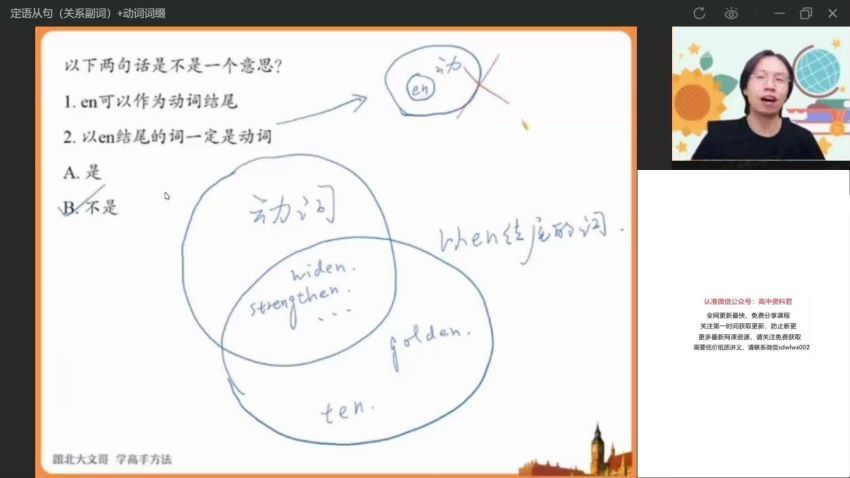 定语从句（关系副词）+动词词缀
以下两句话是不是一个意思?
1. en可以作为动词结尾
2. 以en结尾的词一定是动词
A. 是
B. 不是
动
en
动词
以en结尾的词.
widen.
strengthen.
...
golden.
ten.
跟北大文哥 学高手方法
认准微信公众号：高中资料君
全网更新最快，免费分享课程
关注第一时间获取更新，防止断更
更多最新网课资源，请关注免费获取
需要低价纸质讲义，请联系微信sdwlwx002